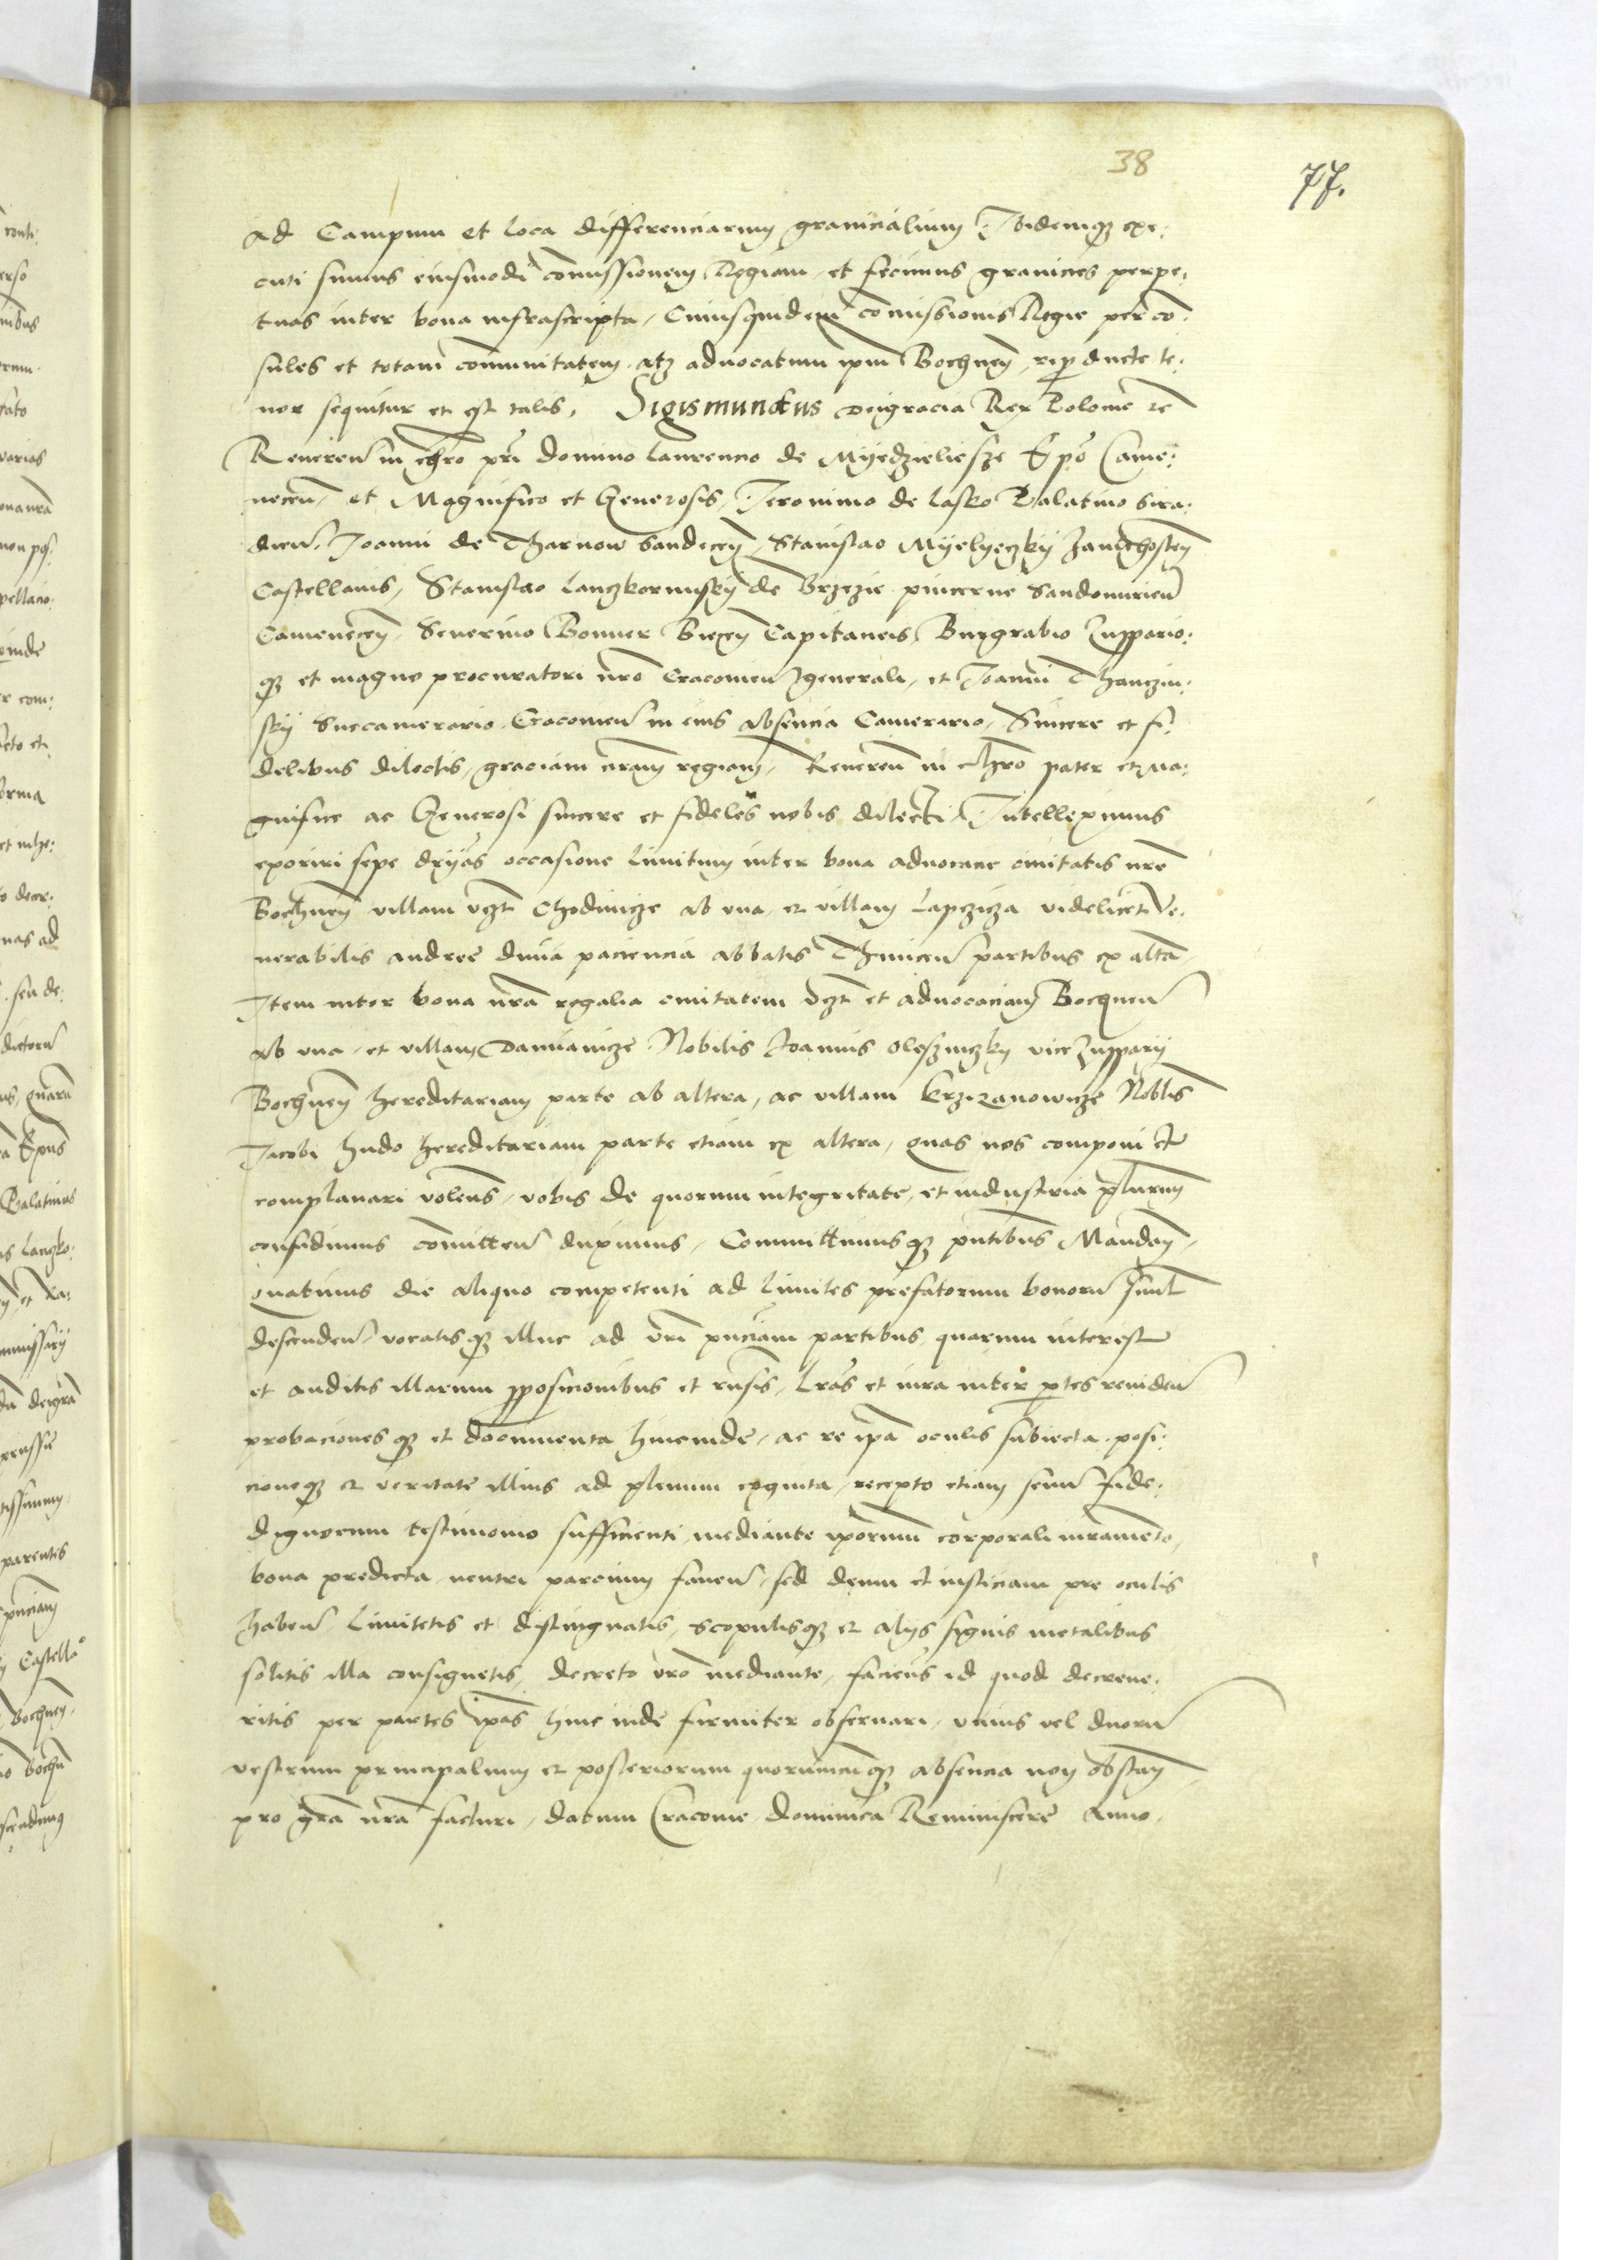 38
77.
ad Campum et loca differenciarum granicialium Ibidemq3 exe:
cuti sumus eiusmodi comissionem Regiam, et fecimus granicies perpe:
tuas inter bona infrascripta, Cuiusquidem comissionis Regie per co:
sules et totam comunitatem atq3 aduocatum ipm Bochnen, reproducte te:
nor sequitur et est talis. Sigismundus Deigracia Rex Polonie rc
Reueren in chro pri domino Laurencio de Myedzieliesze Epo Came:
necen, et Magnifico et Generosis, Jeronimo de Lasko Palatino Sira:
dien, Joanni de Tharnow Sandecen, Stanislao Myelyeczky Zawichosten
Castellanis, Stanislao Lanczkorunsky de Brzezie pincerne Sandomirien
Camenecen, Seuerino Bonner Biecen Capitaneis, Burgrabio Zuppario:
q3 et magno procuratori nro Cracouien generali, et Joanni Thanczin:
sky Succamerario Cracouien in eius absencia Camerario, Sincere et fi:
delibus dilectis, graciam nram regiam, Reueren in Chro pater et Ma:
gnifice ac Generosi sincere et fideles nobis dilecti, Intelleximus
exoriri sepe dryas occasione limitum inter bona aduocacie ciuitatis nre
Bochnen villam vzt Chodinicze ab vna, et villam Lapczicza videlicet Ve:
nerabilis andree diuina paciencia abbatis Thinicen partibus ex alta,
Item inter bona nra regalia ciuitatem vzt et aduocaciam Bochnen
ab vna, et villam Damianicze Nobilis Joannis Oleszniczky vice zuppary
Bochnen hereditariam parte ab altera, ac villam Krzizanowicze Noblis
Jacobi hudo hereditariam parte etiam ex altera, quas nos componi et
complanari volens, vobis de quorum integritate, et industria plurimum
confidimus comitten duximus, Committimusq3 pntibus Mandan,
quatinus die aliquo competenti ad limites prefatorum bonoru simul
descenden, vocatisq3 illuc ad vri pnciam partibus quarum interest
et auditis illarum pposicionibus et rnsis, lras et iura inter ptes reuiden
probacionesq3 et documenta hincinde, ac re ipa oculis subiecta, posi:
cioneq3 et veritate illius ad plenum exquita, recepto etiam seniu fide:
dignorum testimonio sufficienti mediante ipsorum corporali iuramento,
bona predicta neutri parcium fauen, sed deum et insticiam pre oculis
haben, limitetis et distinguatis, scopulisq3 et alijs signis metalibus
solitis illa consignetis, decreto vro mediante, faciens id quod decreue:
ritis per partes ipas hinc inde firmiter obseruari, vnius vel duoru
vestrum principalium et posteriorum quorumcuq3 absencia non obstan,
pro gra nra facturi, datum Cracouie dominica Reminiscere Anno,